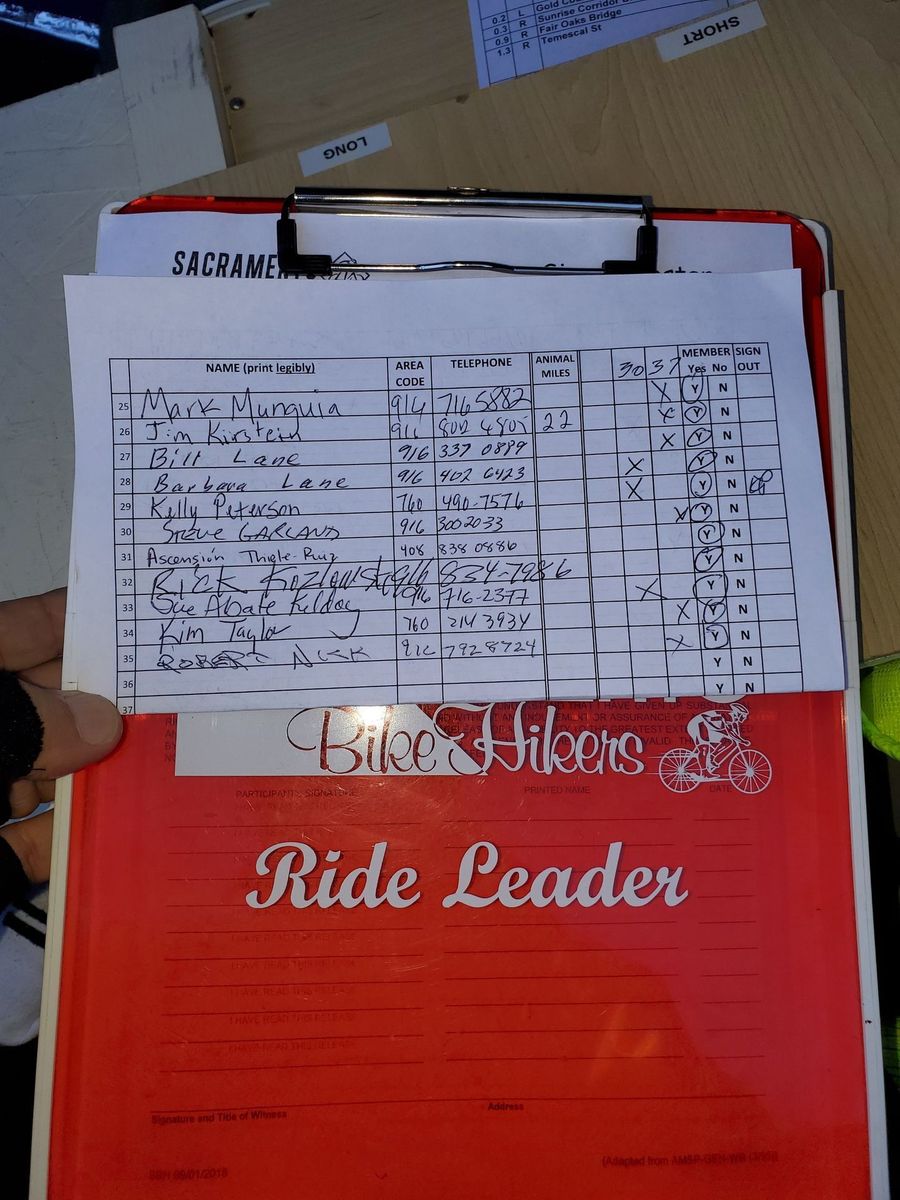 0.2 L Gold
0.3 R Sunrise Corridor
0.9 R Fair Oaks Bridge
1.3 R Temescal St
SHORT
LONG
SACRAMENTO
NAME (print legibly) AREA CODE TELEPHONE ANIMAL MILES 30 37 MEMBER Yes No SIGN OUT
25 Mark Munguia 914 716 5882 X Y N
26 Jim Kirstein 916 800 4805 22 X Y N
27 Bill Lane 916 337 0889 X Y N
28 Barbara Lane 916 402 6423 X Y N
29 Kelly Peterson 760 490-7576 X Y N
30 STEVE GARLAND 916 300 2033 X Y N
31 Ascensión Thiele-Ruiz 408 838 0886 Y N
32 RICK 916 834-7986 Y N
33 Sue Abate 916 716-2377 X Y N
34 Kim Taylor 760 214 3934 X Y N
35 ROBERT NICK 916 792 8724 X Y N
36 Y N
37 Y N
Bike Hikers
PARTICIPANT'S SIGNATURE PRINTED NAME DATE
Ride Leader
I HAVE READ THIS RELEASE
I HAVE READ THIS RELEASE
I HAVE READ THIS RELEASE
I HAVE READ THIS RELEASE
I HAVE READ THIS RELEASE
Signature and Title of Witness Address
SBH 09/01/2018